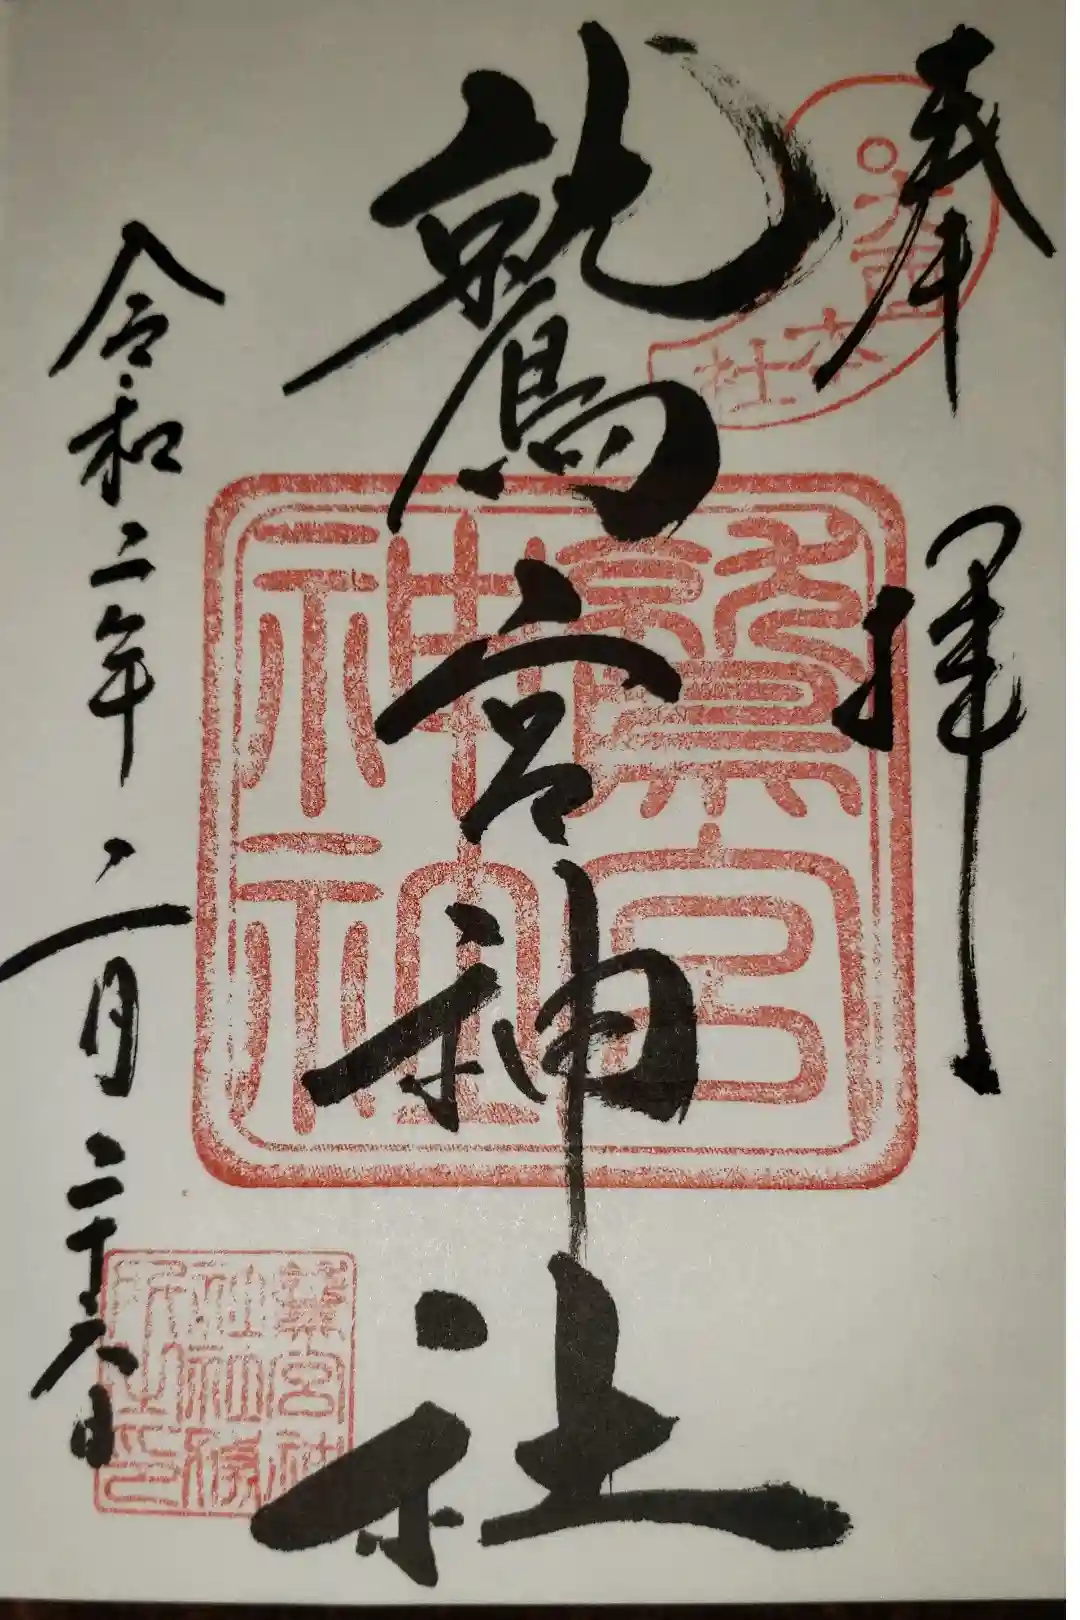 奉拝
大酉
本社
鷲宮神社
鷲宮
神社
令和二年二月二十六日
鷲宮神
社社務
所之印